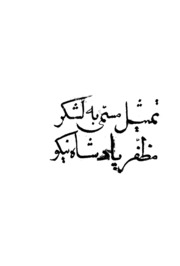 تمثیل مستمی به لشکر
مظفر پادشاه نیکو